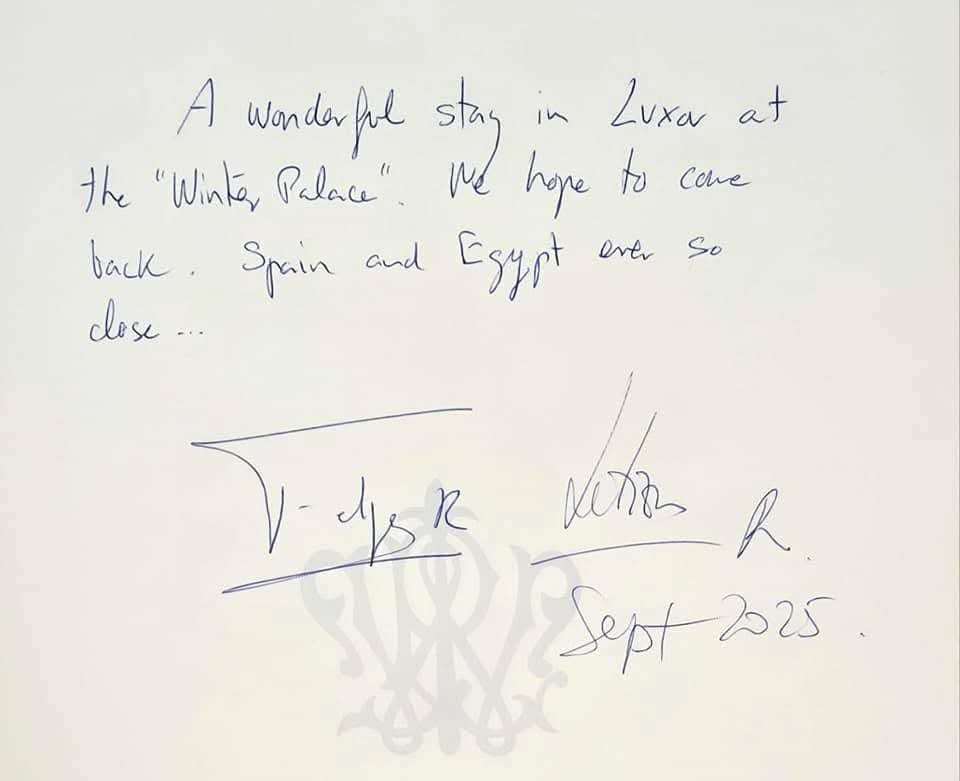 A wonderful stay in Luxor at
the "Winter Palace". We hope to come
back. Spain and Egypt ever so
close ...
Felipe R
Letizia R.
Sept 2025.